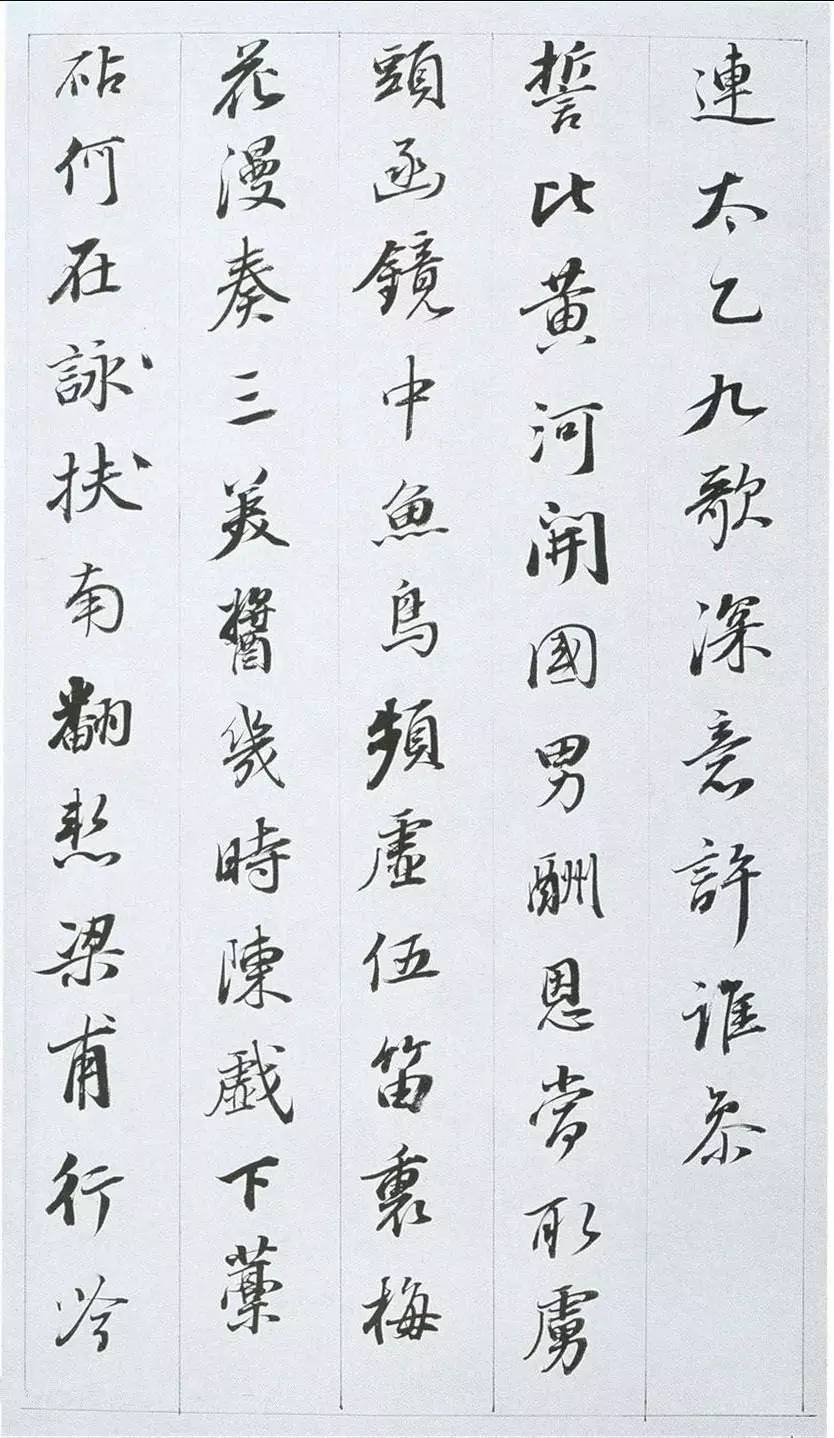 連太乙九歌深意許誰参
誓比黄河開國男酬恩當取虜
頭函鏡中魚鳥頻虛伍笛裏梅
花漫奏三美醬幾時陳戲下藁
砧何在詠扶南翻愁梁甫行吟